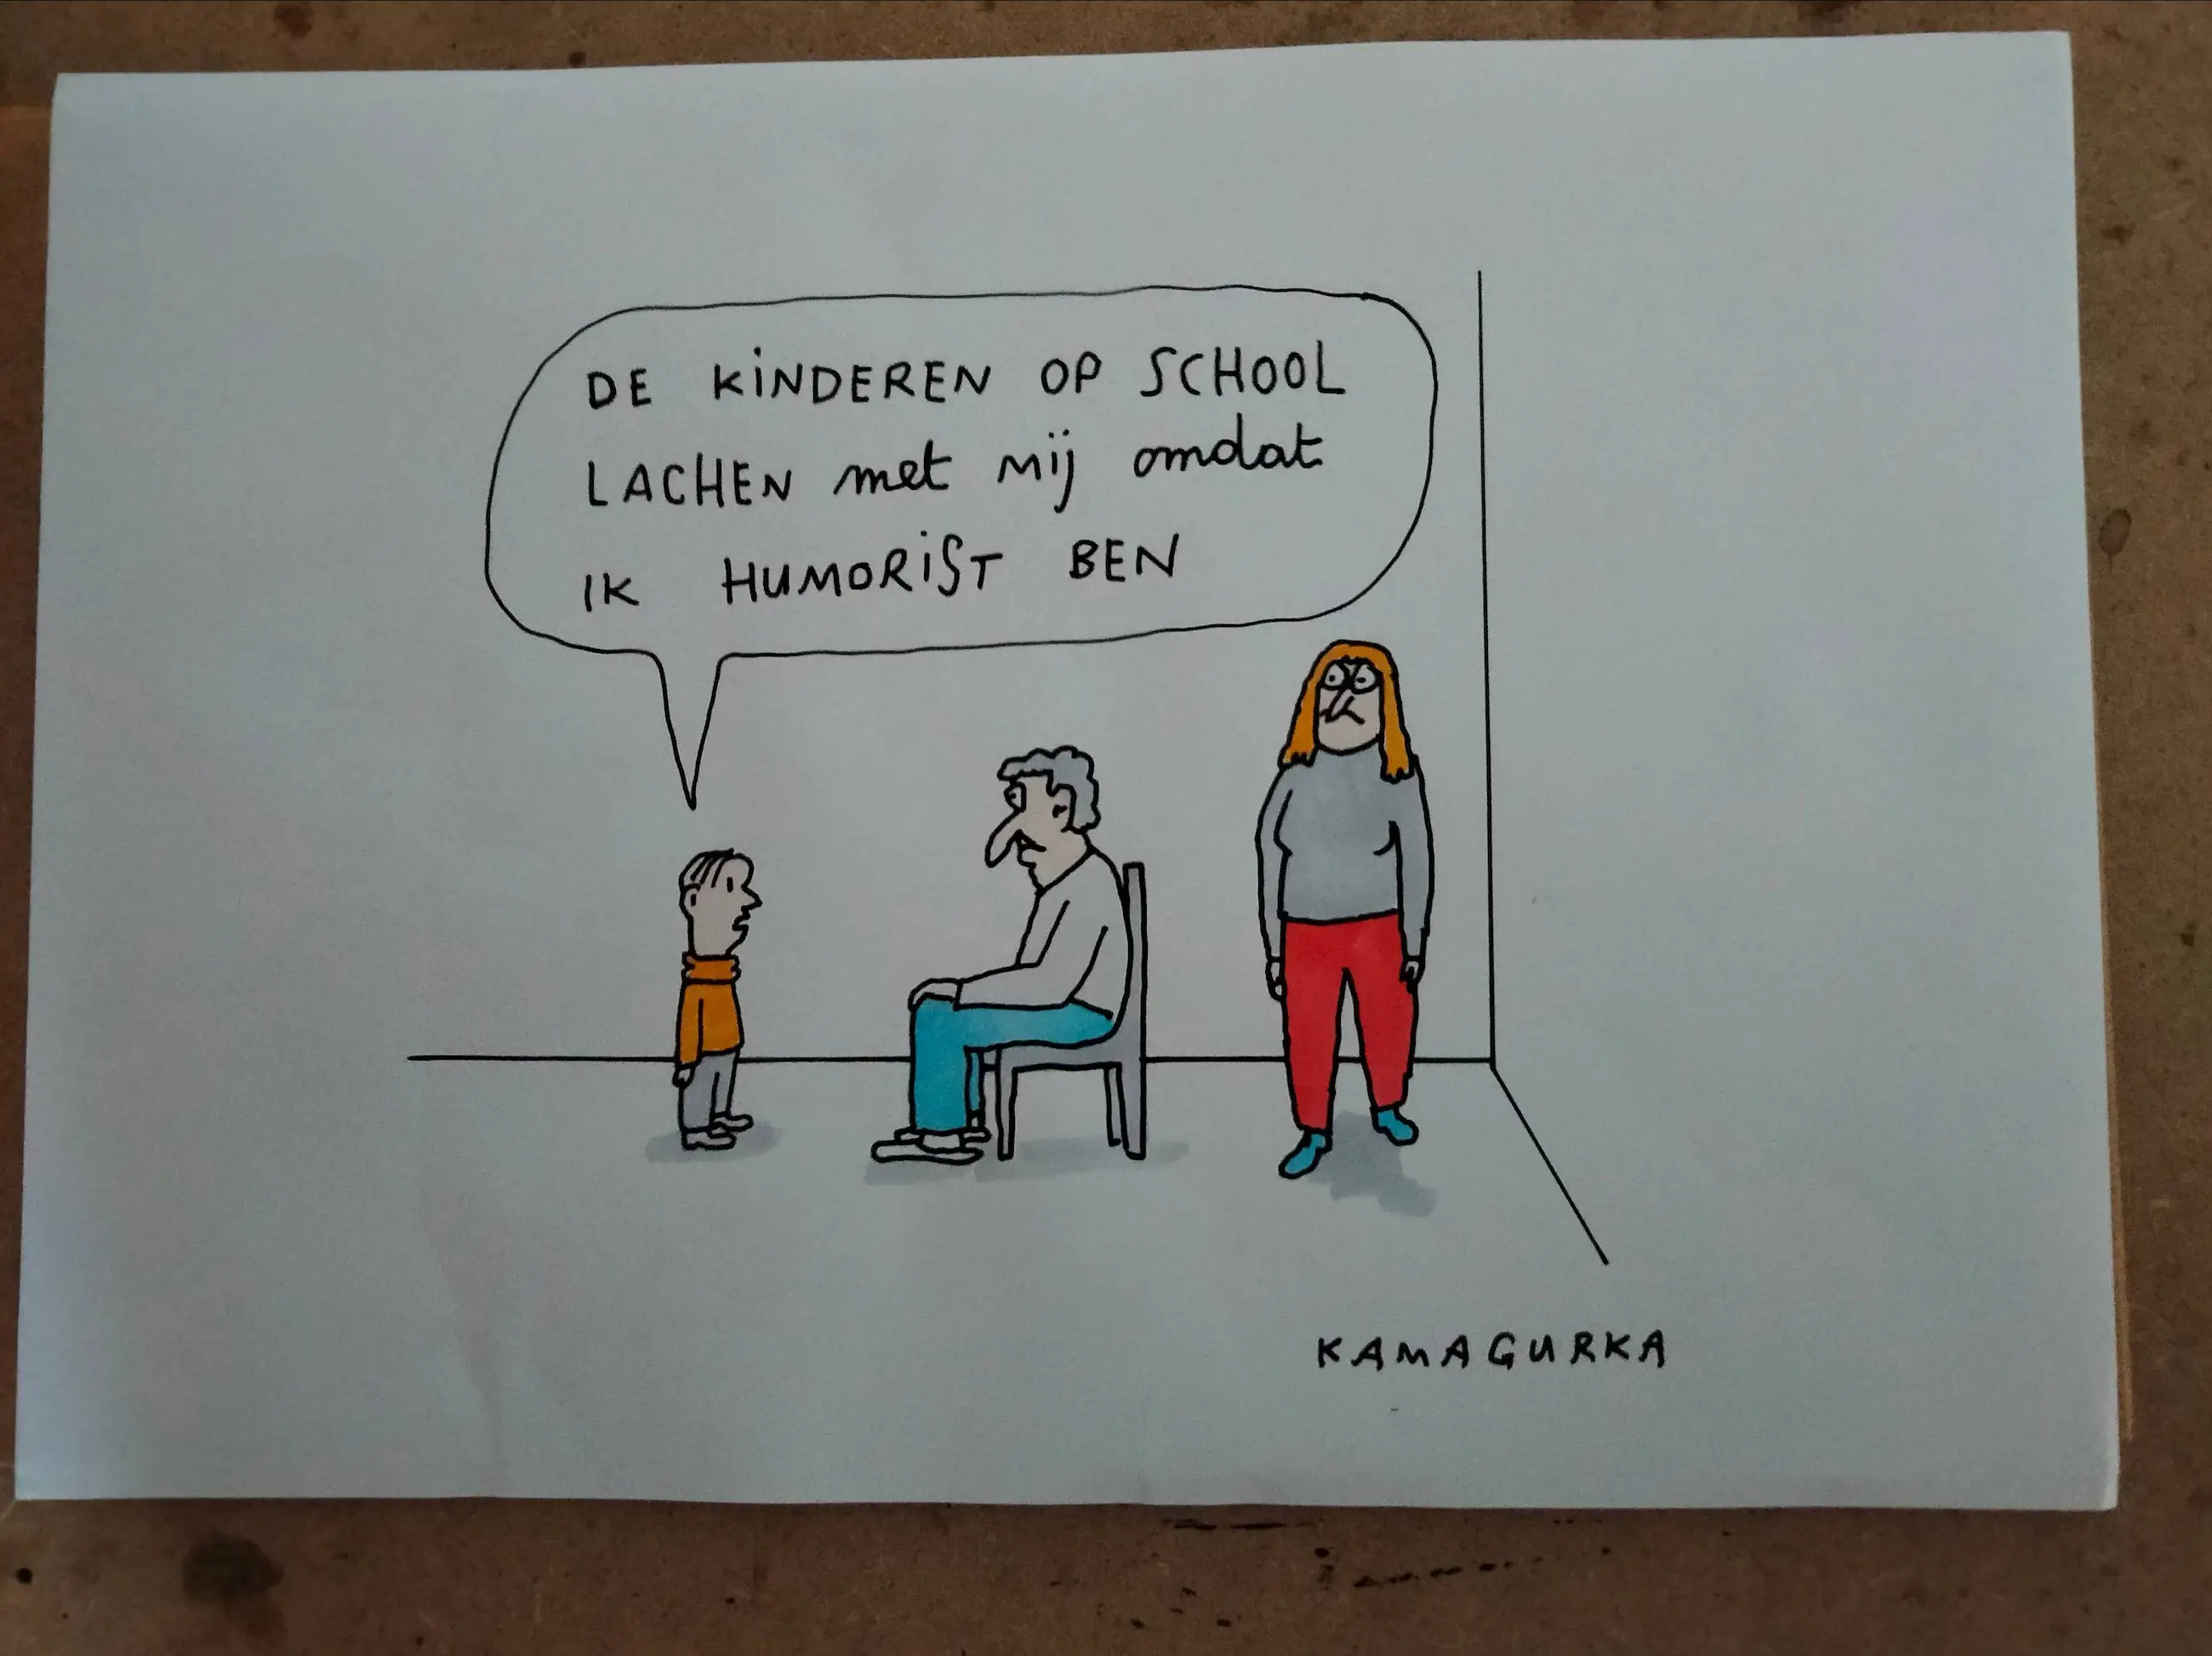 DE KINDEREN OP SCHOOL
LACHEN met MIJ omdat
IK HUMORIST BEN
KAMAGURKA